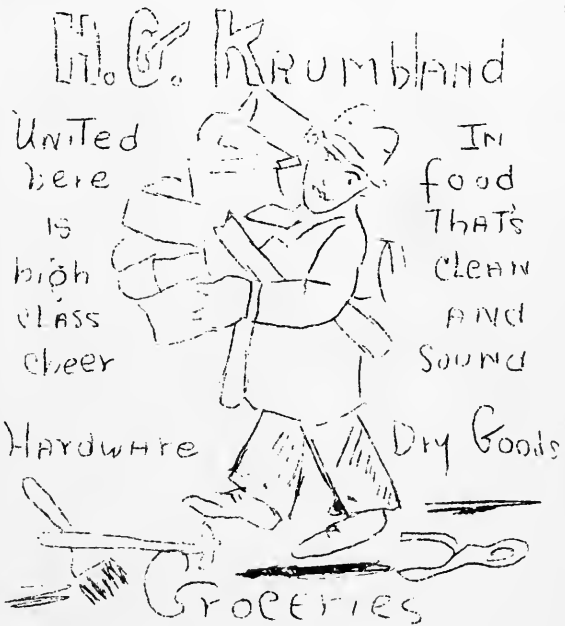 H.G. Krumbland
United
here
is
high
class
cheer
In
food
That's
clean
and
sound
Hardware
Dry Goods
Groceries